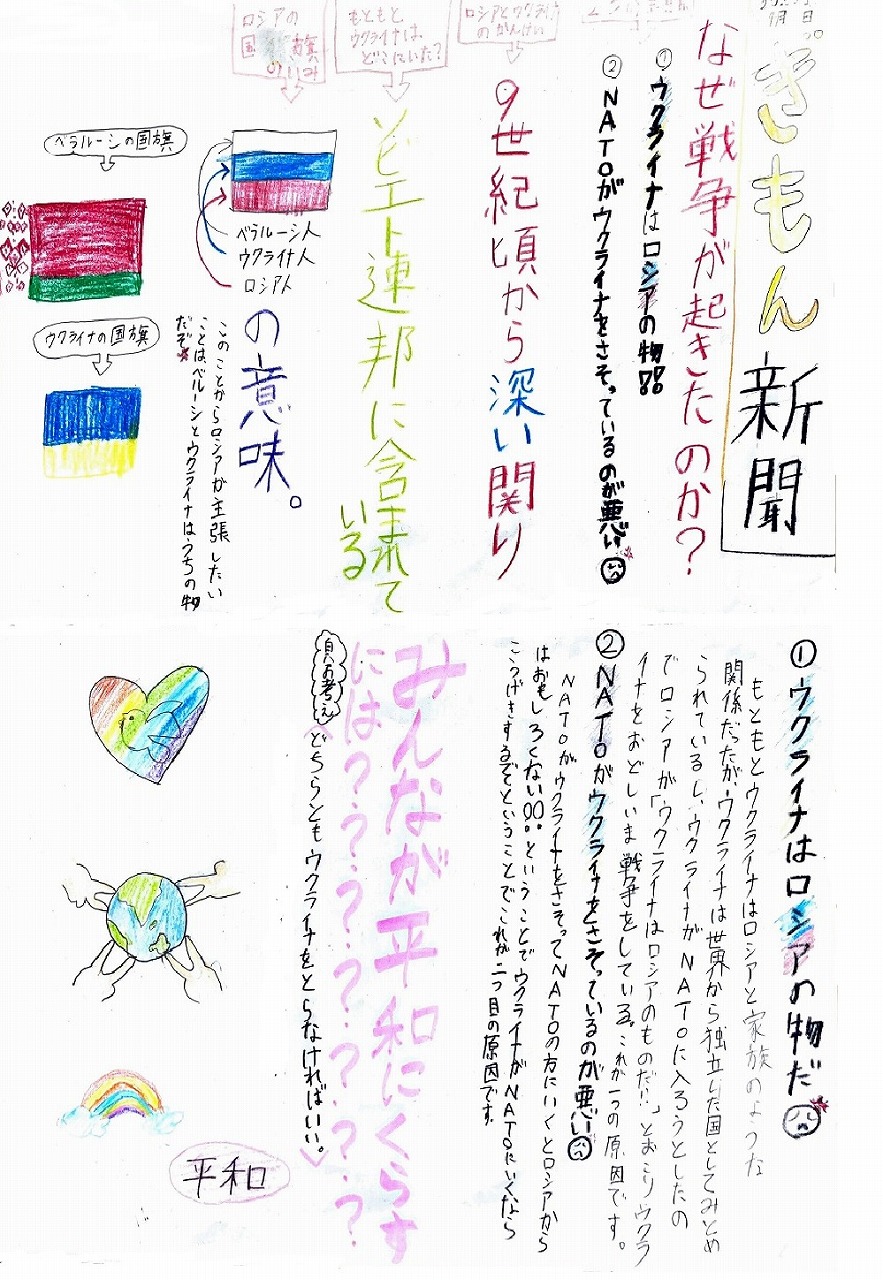 9月 日
ぎもん新聞
なぜ戦争が起きたのか?
①ウクライナはロシアの物!!
②NATOがウクライナをさそっているのが悪い。
ロシアとウクライナのかんけい
9世紀頃から深い関り
もともとウクライナはどこにいた?
ソビエト連邦に含まれている
ロシアの国旗のいみ
ベラルーシ人
ウクライナ人
ロシア人
の意味。
このことからロシアが主張したい
ことは、ベルーシとウクライナはうちの物
だぞ
ベラルーシの国旗
ウクライナの国旗
①ウクライナはロシアの物だ
もともとウクライナはロシアと家族のような
関係だったが、ウクライナは世界から独立した国としてみとめ
られているし、ウクライナがNATOに入ろうとしたの
でロシアが「ウクライナはロシアのものだ!!」とおこりウクラ
イナをおどしいま戦争をしている。これが一つの原因です。
②NATOがウクライナをさそっているのが悪い
NATOがウクライナをさそってNATOの方にいくとロシアから
はおもしろくない!!ということでウクライナがNATOにいくなら
こうげきするぞということでこれが二つ目の原因です。
みんなが平和にくらす
には??????????
どちらともウクライナをとらなければいい。
平和